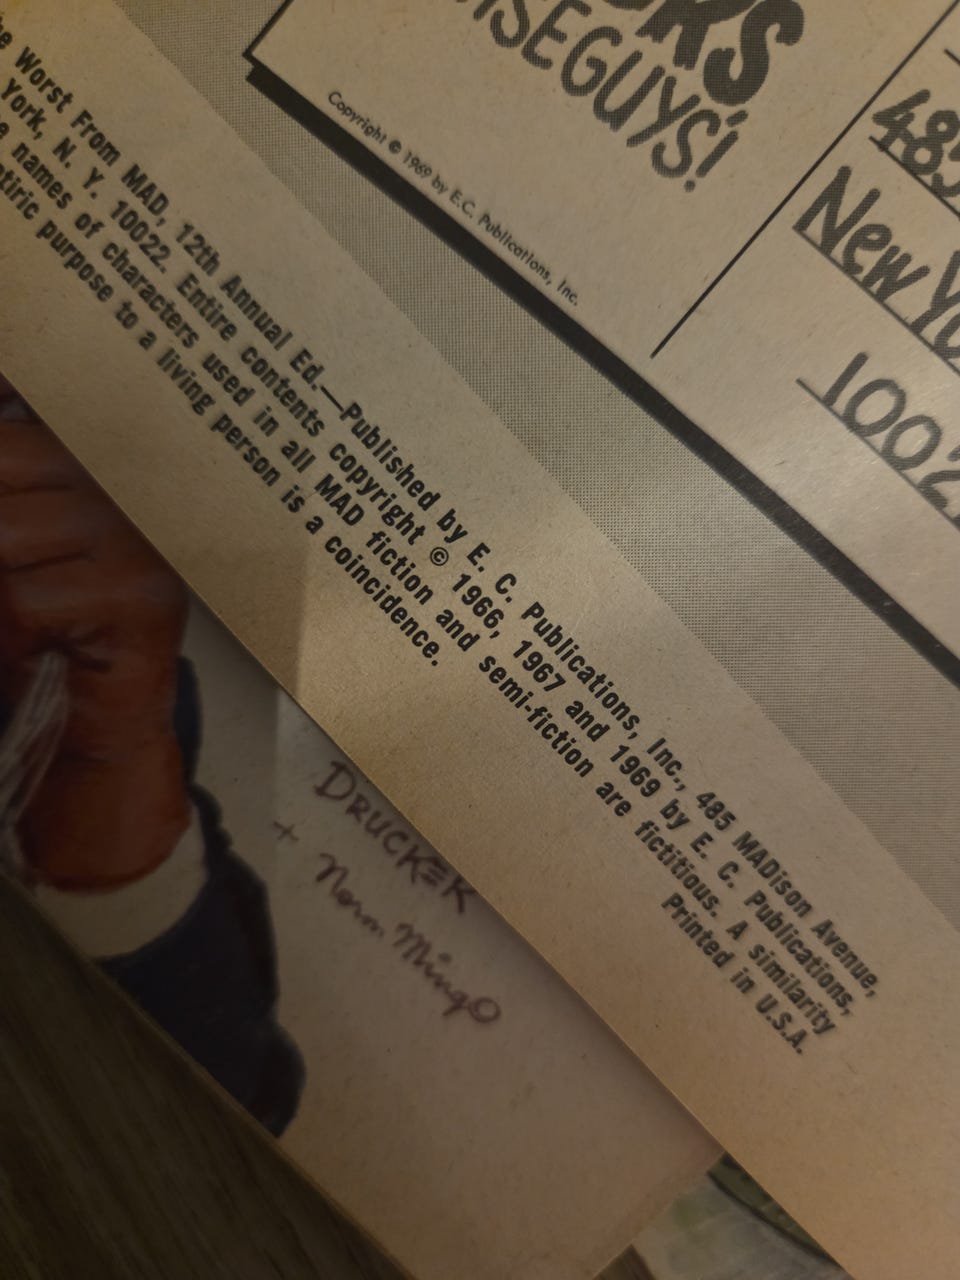 Copyright © 1969 by E.C. Publications, Inc.
New
Worst From MAD, 12th Annual Ed.—Published by E. C. Publications, Inc., 485 MADison Avenue,
York, N. Y. 10022. Entire contents copyright © 1966, 1967 and 1969 by E. C. Publications,
names of characters used in all MAD fiction and semi-fiction are fictitious. A similarity
purpose to a living person is a coincidence.
Printed in U.S.A.
DRUCKER
+ Norm Mingo